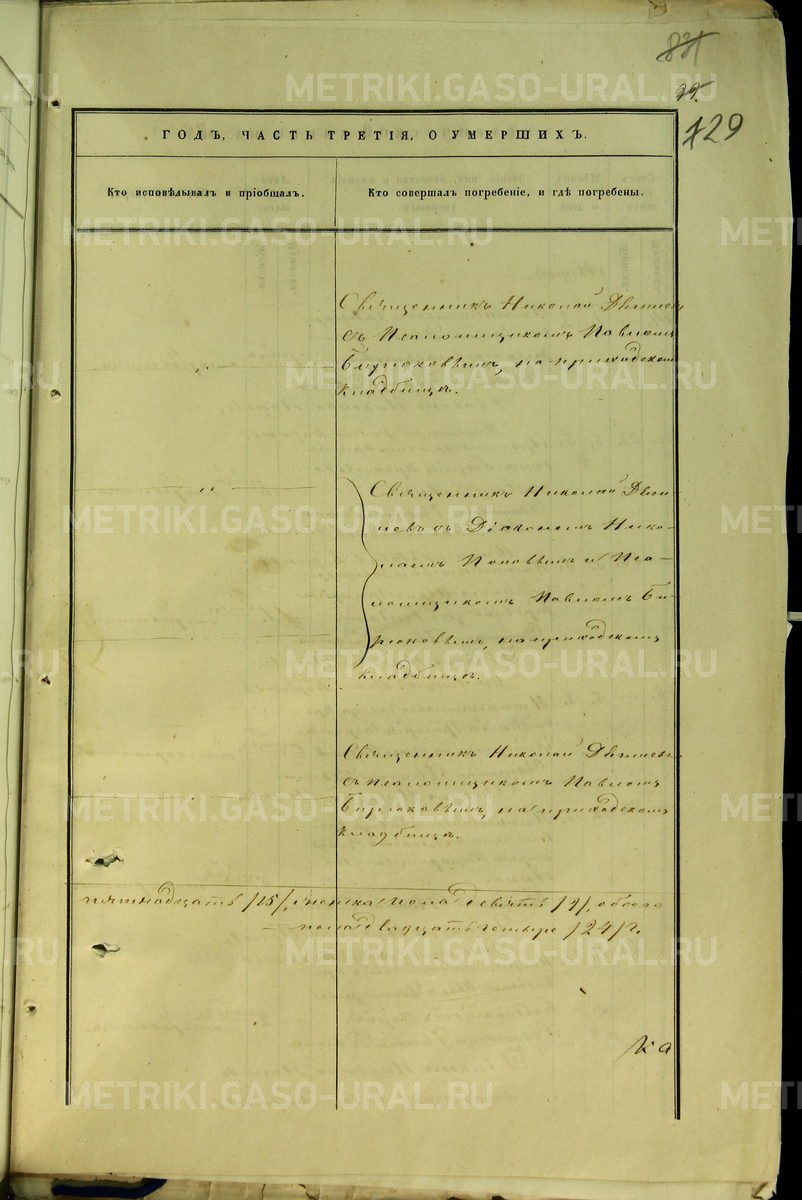 831
99.
129
ГОДЪ, ЧАСТЬ ТРЕТІЯ, О УМЕРШИХЪ.
Кто исповѣдывалъ и пріобщалъ.
Кто совершалъ погребеніе, и гдѣ погребены.
Священникъ Николай
съ Псаломщикомъ Павломъ
Бирюковымъ, на приходскомъ
кладбищѣ.
Священникъ Николай
съ Діакономъ Нико-
лаемъ Поповымъ и Пса-
ломщикомъ Павломъ Би-
рюковымъ, на приходскомъ
кладбищѣ.
Священникъ Николай
съ псаломщикомъ Павломъ
Бирюковымъ, на приходскомъ
кладбищѣ.
пятнадцать /15/, женска пола девять /9/, обоего
пола двадцать четыре /24/.
Ка
METRIKI.GASO-URAL.RU